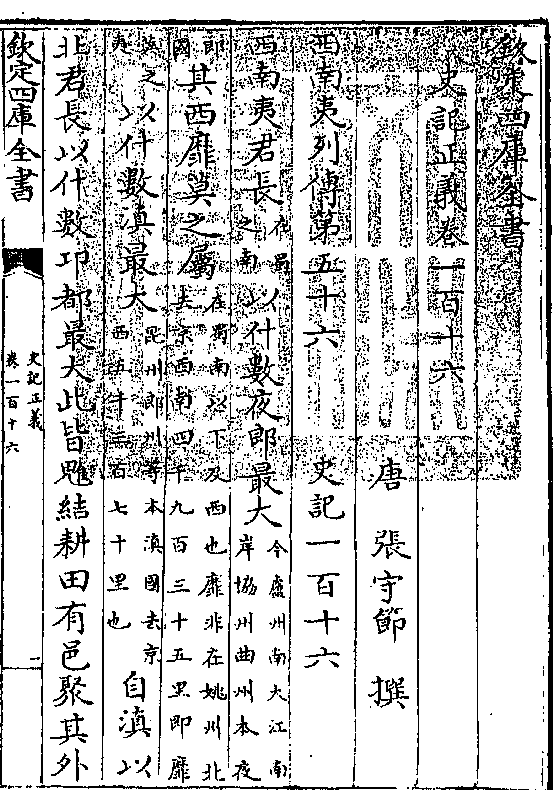 欽定四庫全書
史記正義卷一百十六
唐 張守節 撰
西南夷列傳第五十六 史記一百十六
西南夷君長在蜀之南以什數夜郎最大今瀘州南大江南岸協州曲州本夜
郎國其西靡莫之屬在蜀南以下及西也靡非在姚州北去京西南四千九百三十五里即靡
莫之夷以什數滇最大昆州郎州等本滇國去京西五千三百七十里也自滇以
北君長以什數邛都最大此皆魋結耕田有邑聚其外
欽定四庫全書
史記正義
卷一百十六
一